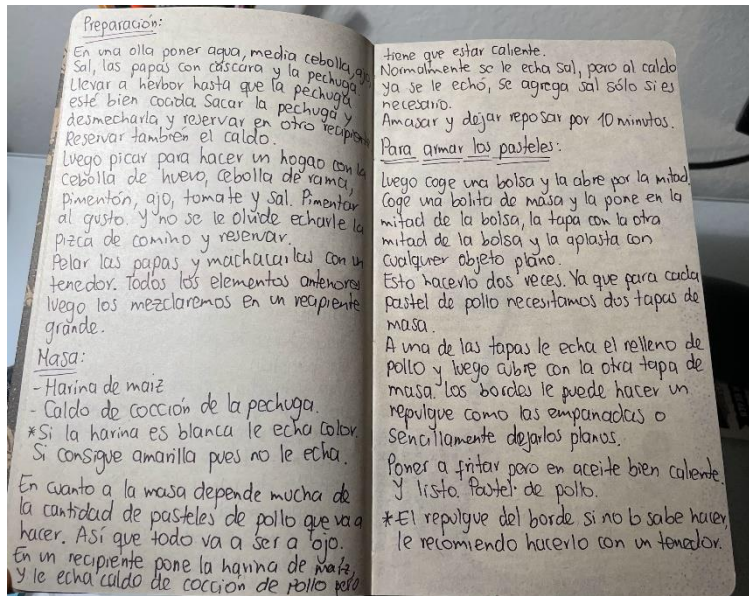 Preparación:
En una olla poner agua, media cebolla, ajo
Sal, las papas con cáscara y la pechuga.
Llevar a herbor hasta que la pechuga
esté bien cocida Sacar la pechuga y
desmecharla y reservar en otro recipiente
Reservar también el caldo.
Luego picar para hacer un hogao con la
Cebolla de huevo, cebolla de rama,
Pimentón, ajo, tomate y sal. Pimentar
al gusto. Y no se le olvide echarle la
pizca de comino y reservar.
Pelar las papas y machacarlas con un
tenedor. Todos los elementos anteriores
luego los mezclaremos en un recipiente
grande.
Masa:
- Harina de maíz
- Caldo de cocción de la pechuga.
*Si la harina es blanca le echa color.
Si consigue amarilla pues no le echa.
En cuanto a la masa depende mucha de
la cantidad de pasteles de pollo que va a
hacer. Así que todo va a ser a ojo.
En un recipiente pone la harina de maíz,
y le echa caldo de cocción de pollo pero
tiene que estar caliente.
Normalmente se le echa sal, pero al caldo
ya se le echó, se agrega sal sólo si es
necesario.
Amasar y dejar reposar por 10 minutos.
Para armar los pasteles:
Luego coge una bolsa y la abre por la mitad.
Coge una bolita de masa y la pone en la
mitad de la bolsa, la tapa con la otra
mitad de la bolsa y la aplasta con
cualquier objeto plano.
Esto hacerlo dos veces. Ya que para cada
pastel de pollo necesitamos dos tapas de
masa.
A una de las tapas le echa el relleno de
pollo y luego cubre con la otra tapa de
masa. Los bordes le puede hacer un
repulgue como las empanadas o
sencillamente dejarlos planos.
Poner a fritar pero en aceite bien caliente.
Y listo. Pastel de pollo.
*El repulgue del borde si no lo sabe hacer,
le recomiendo hacerlo con un tenedor.